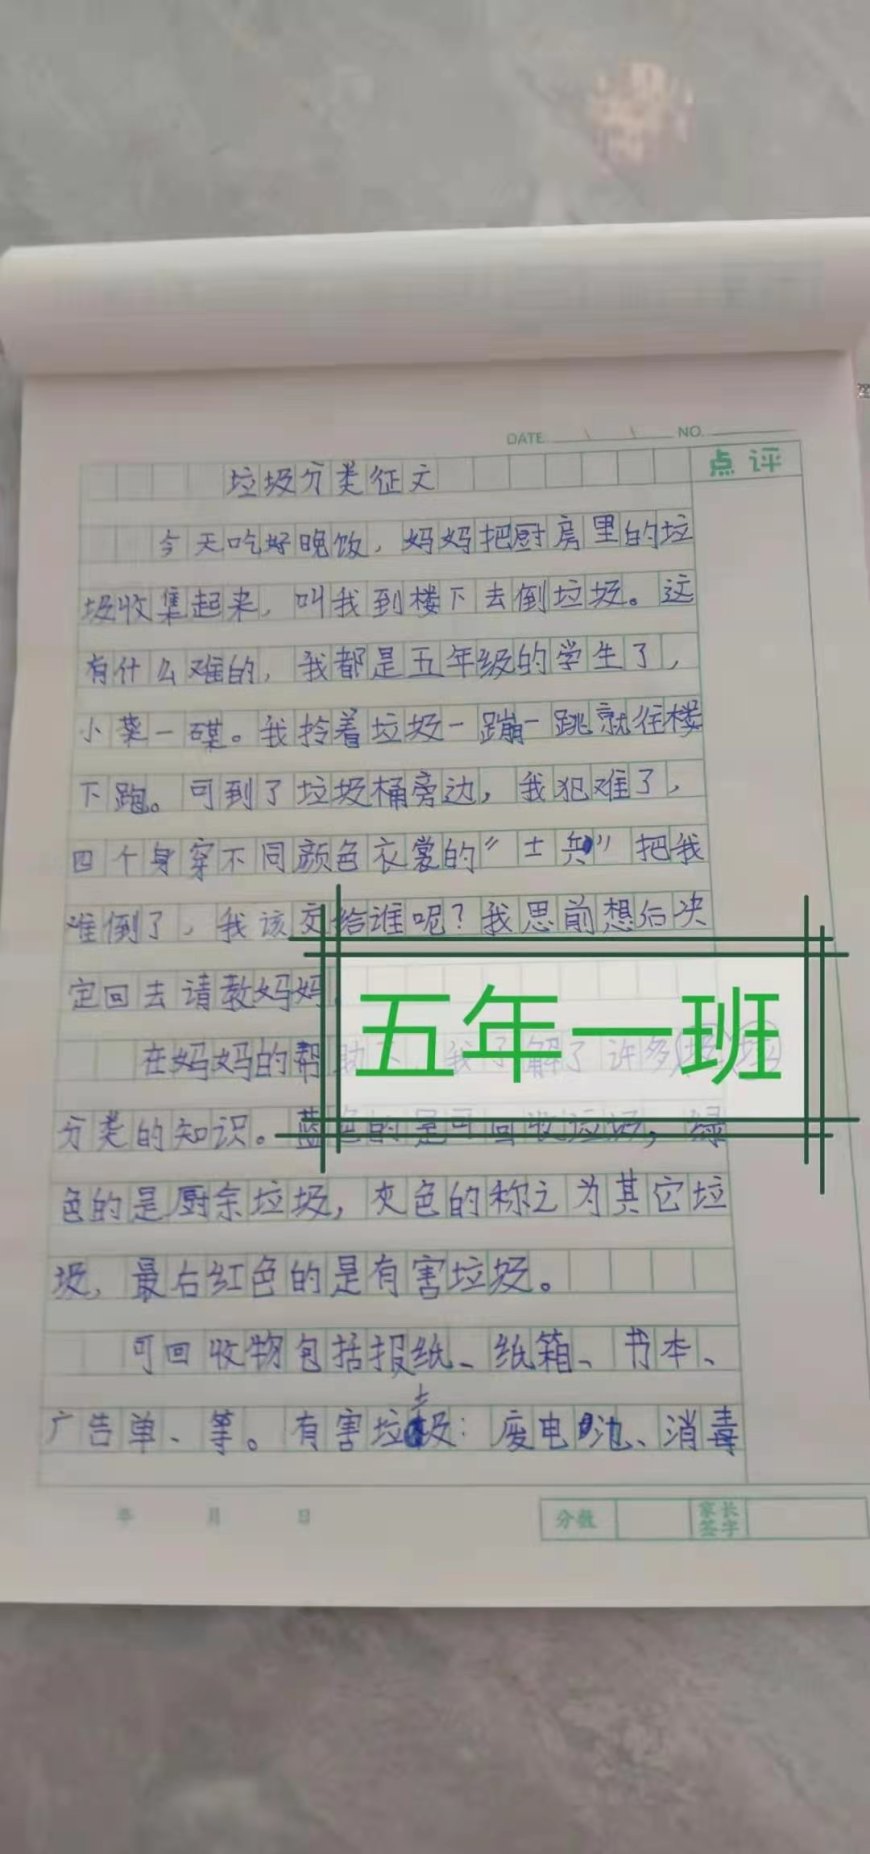 DATE NO.
点评
垃圾分类征文
今天吃好晚饭，妈妈把厨房里的垃
圾收集起来，叫我到楼下去倒垃圾。这
有什么难的，我都是五年级的学生了，
小菜一碟。我拎着垃圾一蹦一跳就往楼
下跑。可到了垃圾桶旁边，我犯难了，
四个身穿不同颜色衣裳的“士兵”把我
难倒了，我该交给谁呢？我思前想后决
定回去请教妈妈
五年一班
在妈妈的帮助下，我了解了许多
分类的知识。蓝色的是可回收垃圾，绿
色的是厨余垃圾，灰色的称之为其它垃
圾，最后红色的是有害垃圾。
可回收物包括报纸、纸箱、书本、
广告单、等。有害垃圾：废电池、消毒
年 月 日
分数 家长签字